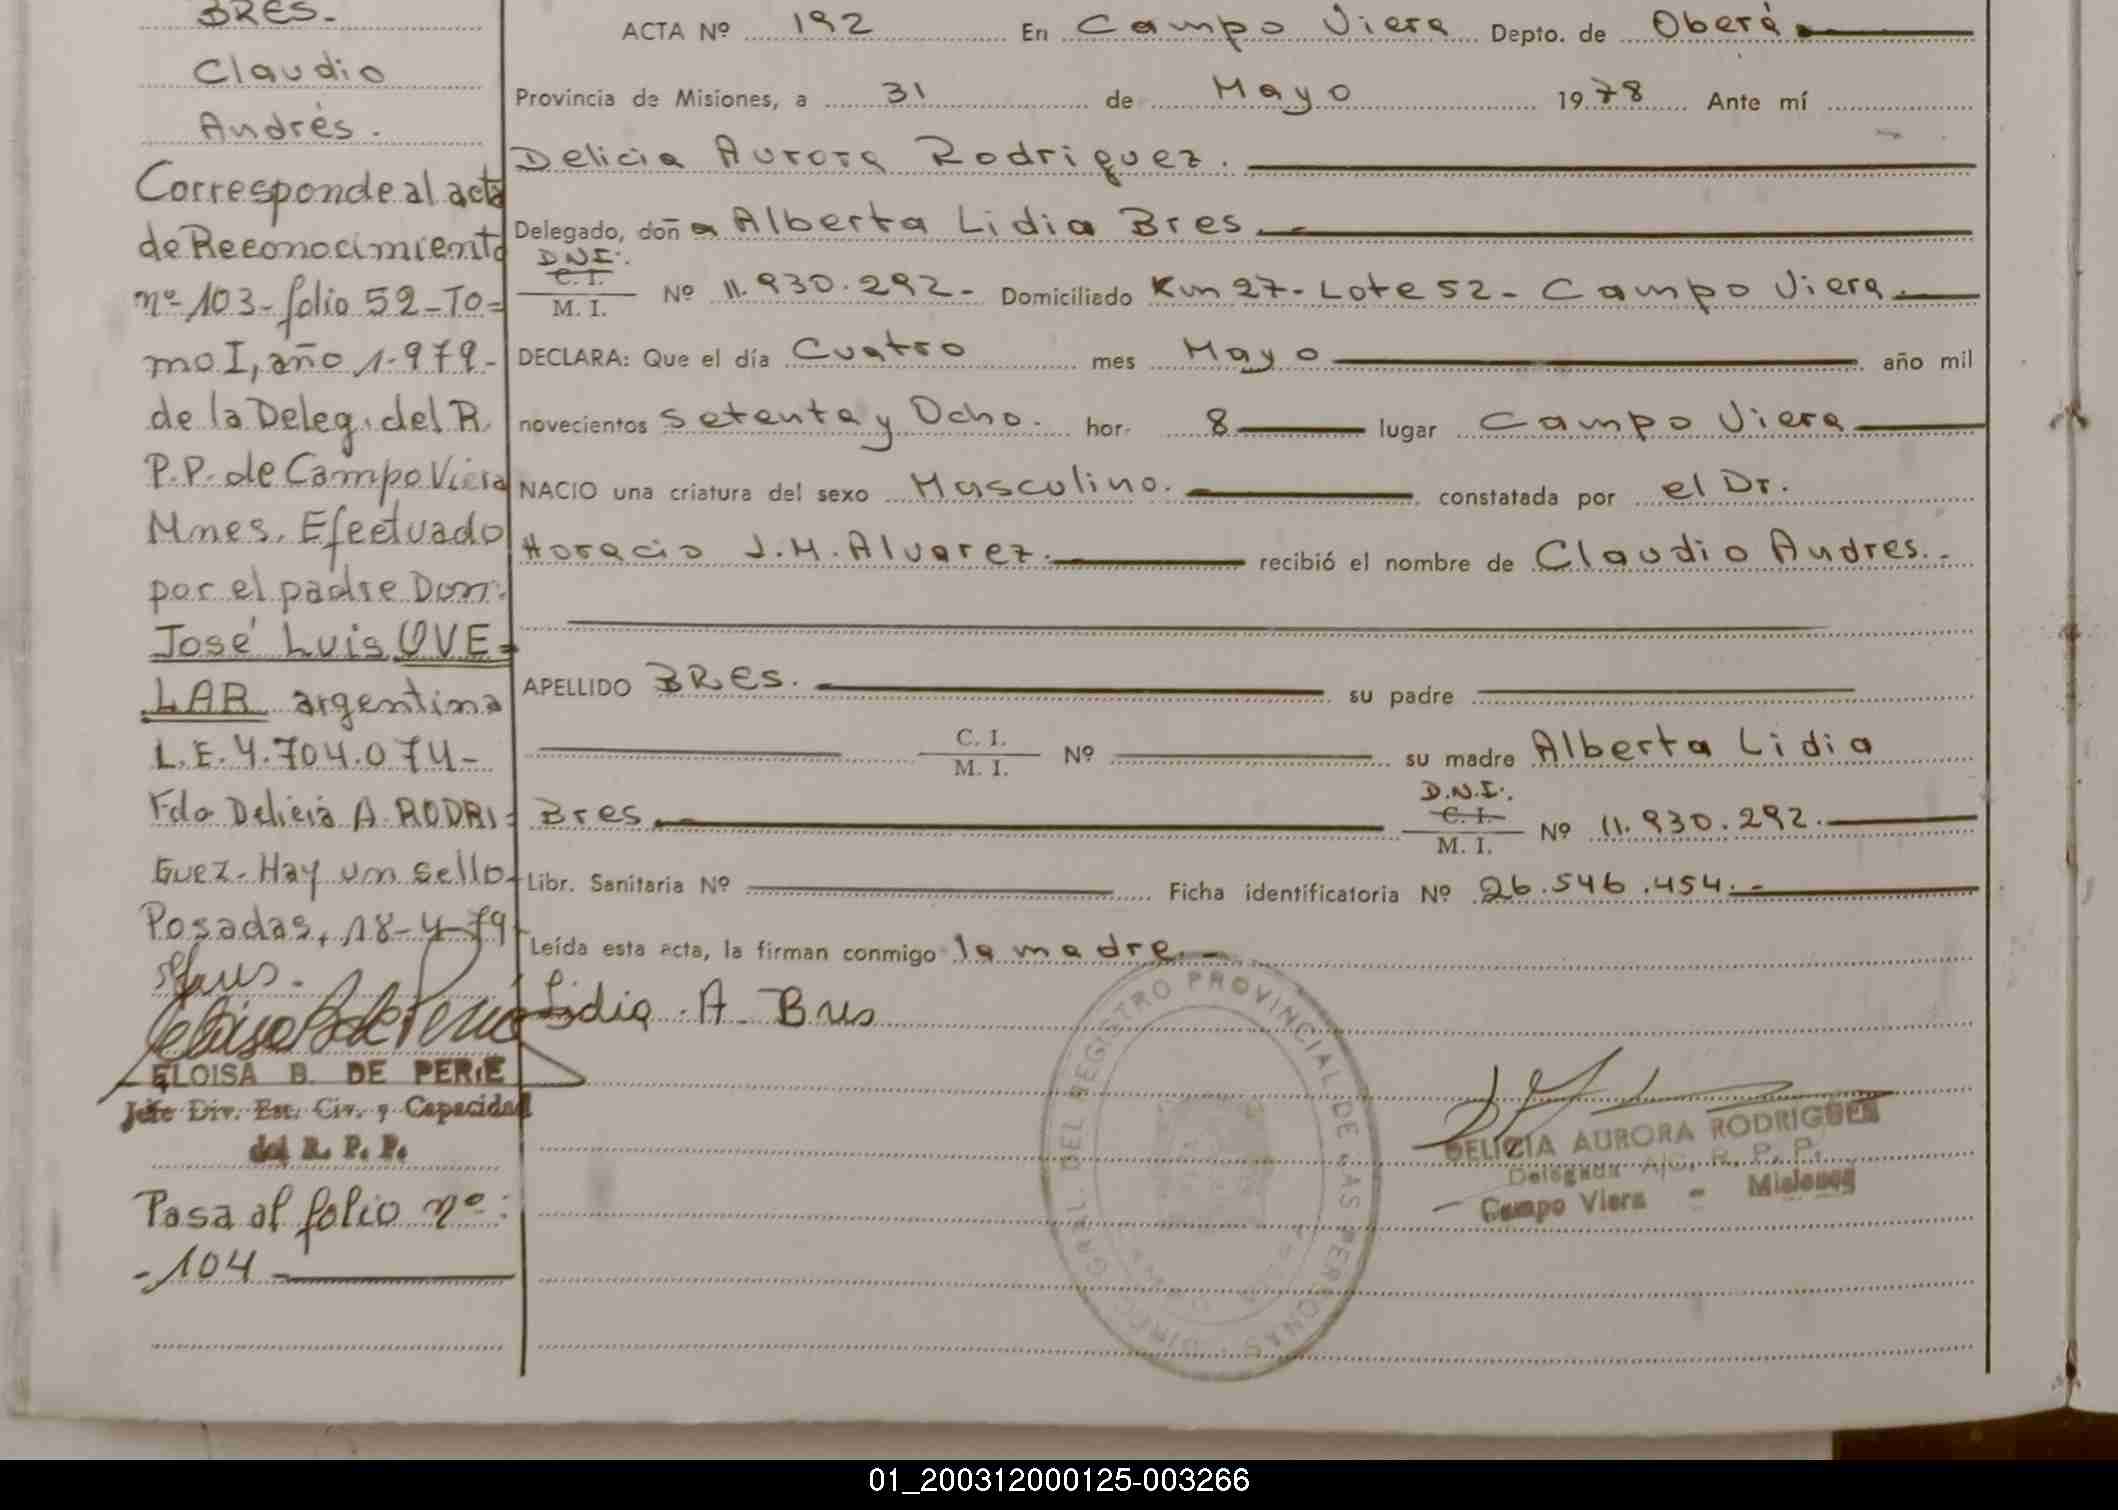 BRES.-
Claudio
Andrés.
Corresponde al acta
de Reconocimiento
nº 103 - folio 52 - To=
mo I, año 1.979-
de la Deleg. del R.
P.P. de Campo Viera
Mnes. Efectuado
por el padre Don:
José Luis OVE=
LAR argentino
L.E. 4.704.074-
Fdo Delicia A. RODRI=
Guez - Hay un sello
Posadas, 18-4-79
ELOISA B. DE PERIE
Jefe Div. Est. Civ. y Capacidad
del R. P. P.
Pasa al folio nº:
- 104 -
ACTA Nº 192 En Campo Viera Depto. de Oberá
Provincia de Misiones, a 31 de Mayo 1978 Ante mí
Delicia Aurora Rodriguez.
Delegado, doña Alberta Lidia Bres
D.N.I.
C. I.
M. I. Nº 11.930.292- Domiciliado Km 27- Lote 52- Campo Viera
DECLARA: Que el día Cuatro mes Mayo año mil
novecientos Setenta y Ocho. hor- 8 lugar Campo Viera
NACIO una criatura del sexo Masculino. constatada por el Dr.
Horacio J.M. Alvarez. recibió el nombre de Claudio Andres.-
APELLIDO BRES. su padre
C. I.
M. I. Nº su madre Alberta Lidia
Bres D.N.I.
C. I.
M. I. Nº 11.930.292.
Libr. Sanitaria Nº Ficha identificatoria Nº 26.546.454.-
Leída esta acta, la firman conmigo la madre.-
Lidia A. Bres
DIREC. GRAL. DEL REGISTRO PROVINCIAL DE LAS PERSONAS
DELICIA AURORA RODRIGUEZ
Delegada A/C. R. P. P.
Campo Viera - Misiones
01_200312000125-003266